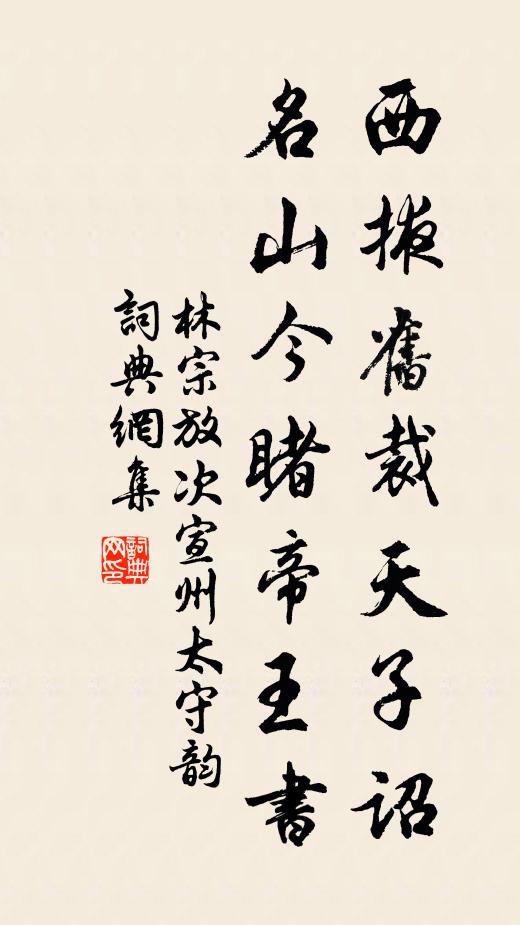 西掖舊裁天子詔
名山今睹帝王書
林宗放次宣州太守韵
詞典網集
詞典網印